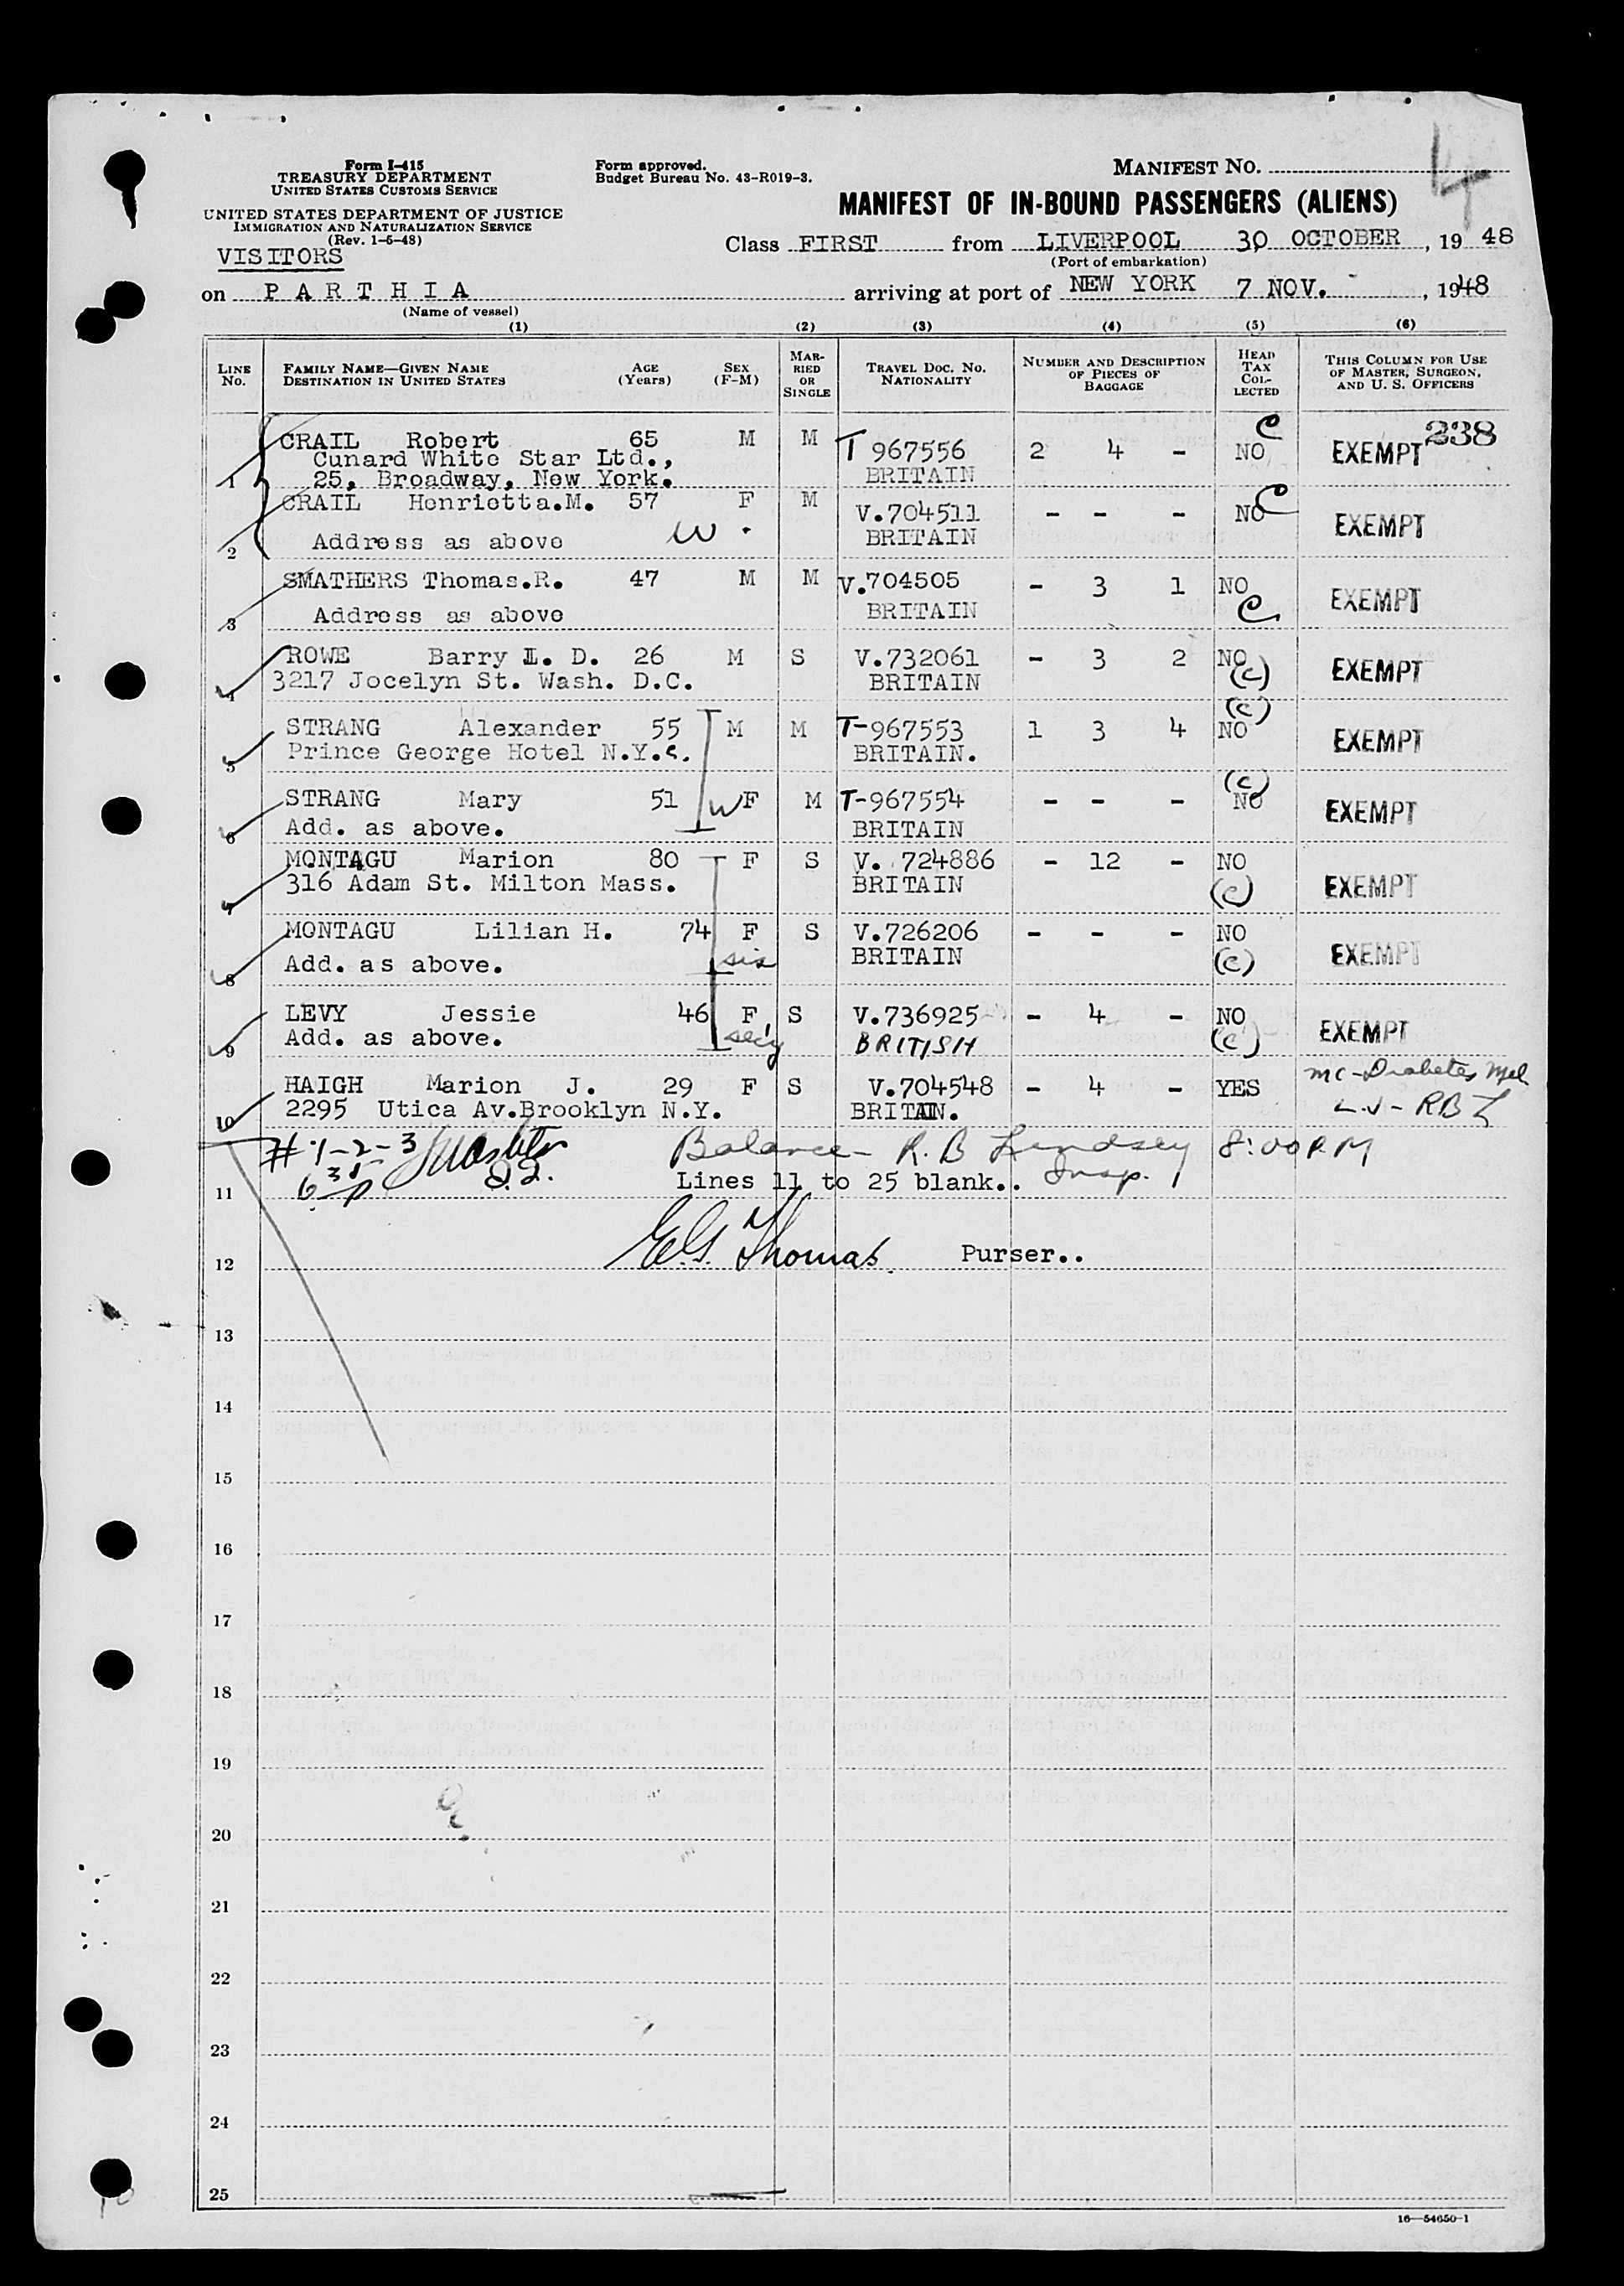 Form I-415
TREASURY DEPARTMENT
UNITED STATES CUSTOMS SERVICE
UNITED STATES DEPARTMENT OF JUSTICE
IMMIGRATION AND NATURALIZATION SERVICE
(Rev. 1-6-48)
VISITORS
Form approved.
Budget Bureau No. 43-R019-3.
MANIFEST NO. 4
MANIFEST OF IN-BOUND PASSENGERS (ALIENS)
Class FIRST from LIVERPOOL 30 OCTOBER, 1948
(Port of embarkation)
on PARTHIA arriving at port of NEW YORK 7 NOV., 1948
(Name of vessel)
(1) (2) (3) (4) (5) (6)
LINE No. FAMILY NAME—GIVEN NAME DESTINATION IN UNITED STATES AGE (Years) SEX (F-M) MARRIED OR SINGLE TRAVEL DOC. NO. NATIONALITY NUMBER AND DESCRIPTION OF PIECES OF BAGGAGE HEAD TAX COLLECTED THIS COLUMN FOR USE OF MASTER, SURGEON, AND U. S. OFFICERS
238
1 CRAIL Robert 65 M M T 967556 2 4 - NO C EXEMPT
Cunard White Star Ltd., BRITAIN
25, Broadway, New York.
2 CRAIL Henrietta.M. 57 F M V.704511 - - - NO C EXEMPT
Address as above W. BRITAIN
3 SMATHERS Thomas.R. 47 M M V.704505 - 3 1 NO C EXEMPT
Address as above BRITAIN
4 ROWE Barry L. D. 26 M S V.732061 - 3 2 NO (C) EXEMPT
3217 Jocelyn St. Wash. D.C. BRITAIN
5 STRANG Alexander 55 M M T-967553 1 3 4 NO (C) EXEMPT
Prince George Hotel N.Y.C. BRITAIN.
6 STRANG Mary 51 W F M T-967554 - - - NO (C) EXEMPT
Add. as above. BRITAIN
7 MONTAGU Marion 80 F S V. 724886 - 12 - NO (C) EXEMPT
316 Adam St. Milton Mass. BRITAIN
8 MONTAGU Lilian H. 74 F S V.726206 - - - NO (C) EXEMPT
Add. as above. sis BRITAIN
9 LEVY Jessie 46 F S V.736925 - 4 - NO (C) EXEMPT
Add. as above. sec'y BRITISH
10 HAIGH Marion J. 29 F S V.704548 - 4 - YES MC-Diabetes Mel
2295 Utica Av.Brooklyn N.Y. BRITAIN.
# 1-2-3 Balance - R. B Lindsey 8:00 P.M
11 Lines 11 to 25 blank.. Insp.
12 E.G. Thomas. Purser..
13
14
15
16
17
18
19
20
21
22
23
24
25
16—54650-1